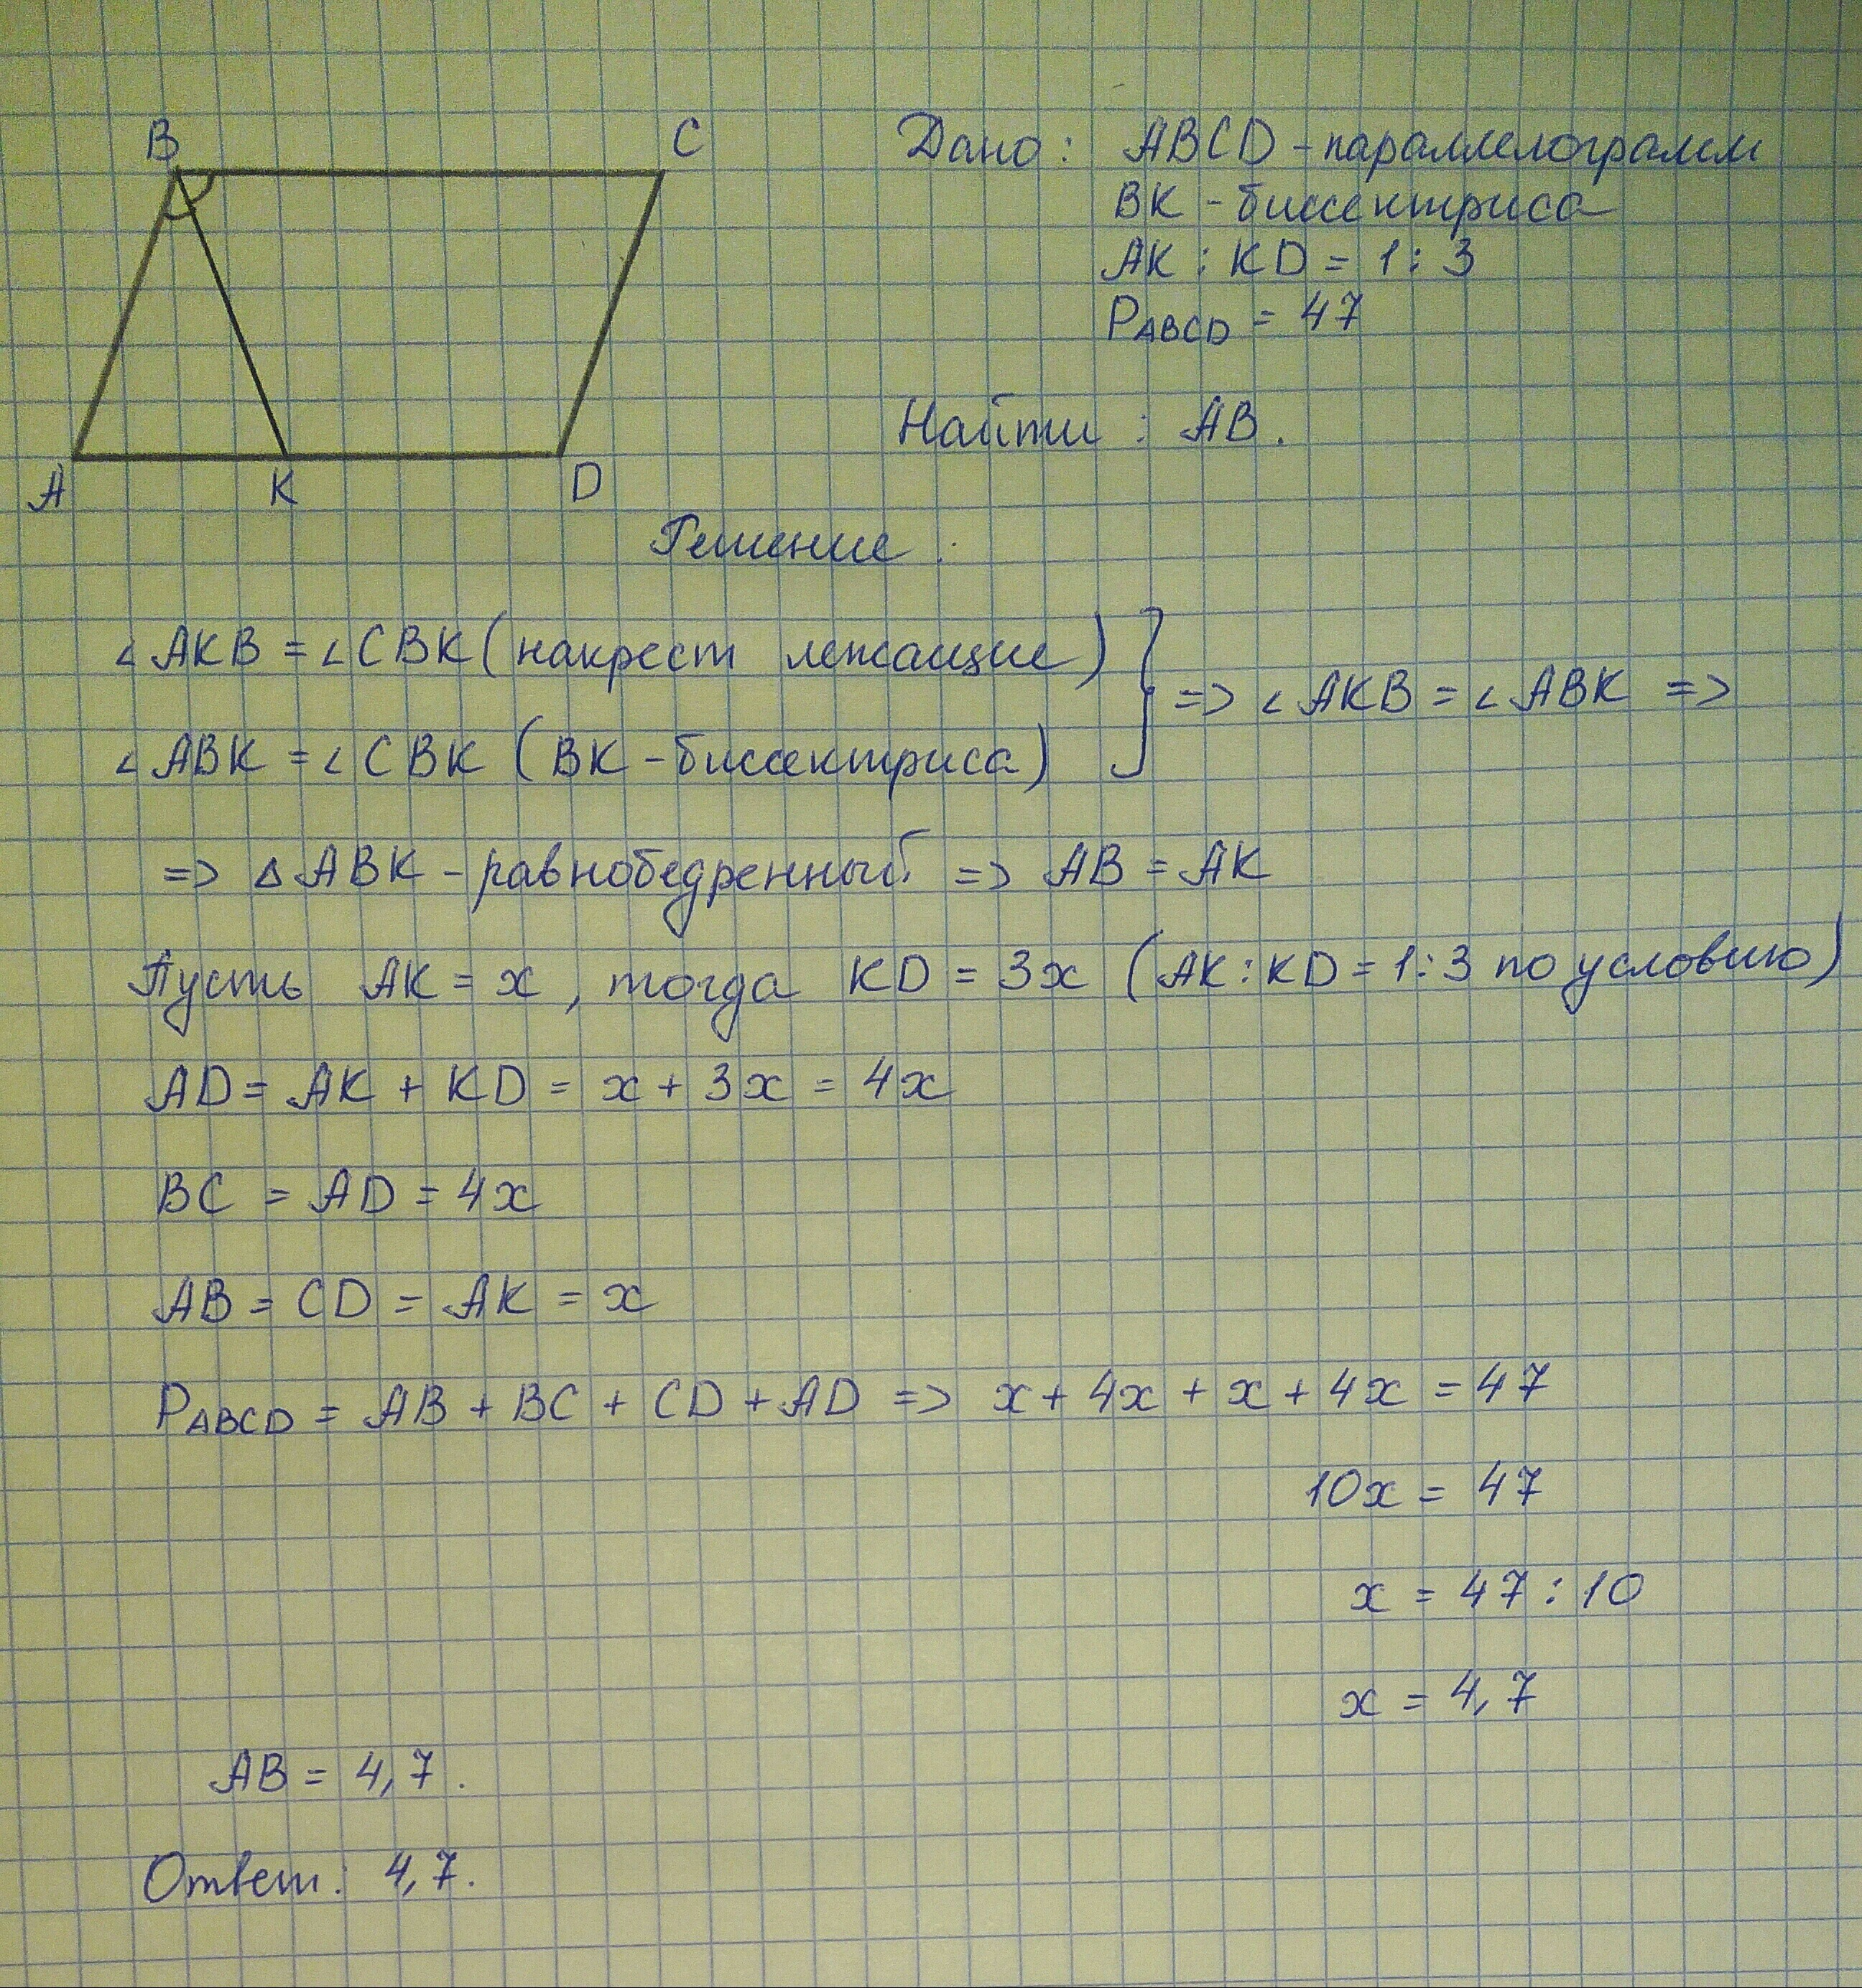 B C
A K D
Дано: ABCD - параллелограмм
BK - биссектриса
AK : KD = 1 : 3
PABCD = 47
Найти : AB.
Решение.
∠AKB = ∠CBK (накрест лежащие)
∠ABK = ∠CBK (BK - биссектриса)
} => ∠AKB = ∠ABK =>
=> △ABK - равнобедренный => AB = AK
Пусть AK = x, тогда KD = 3x (AK:KD = 1:3 по условию)
AD = AK + KD = x + 3x = 4x
BC = AD = 4x
AB = CD = AK = x
PABCD = AB + BC + CD + AD => x + 4x + x + 4x = 47
10x = 47
x = 47 : 10
x = 4,7
AB = 4,7.
Ответ: 4,7.